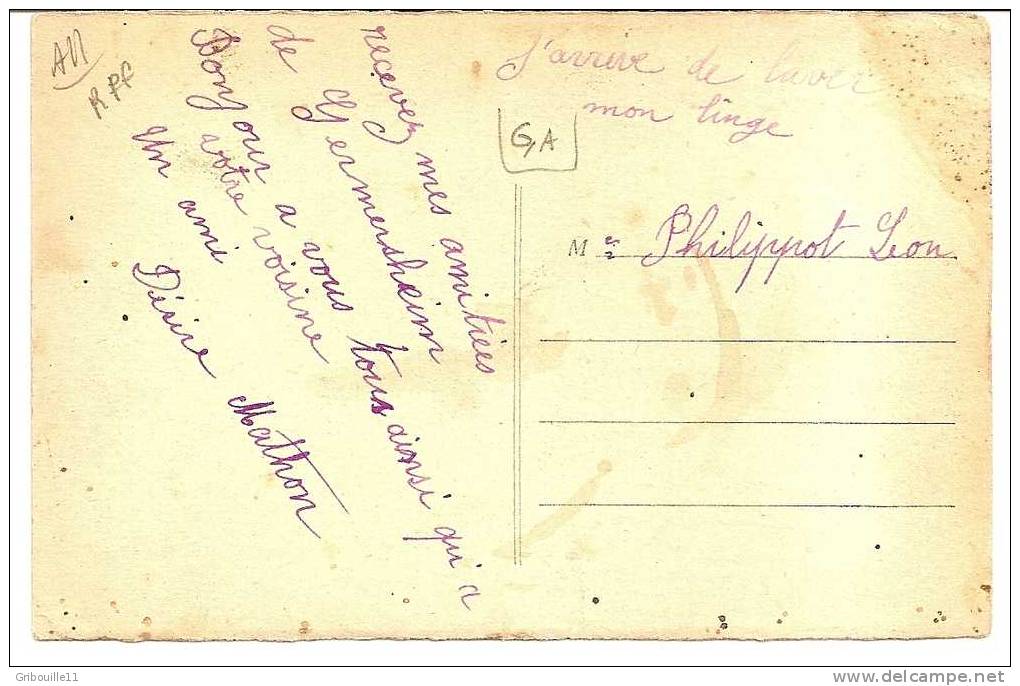 All
R Pf
recevez mes amitiées
de Germersheim
Bonjour a vous tous ainsi qu'a
votre voisine
Un ami
Désire Mathon
J'arrive de laver
mon linge
GA
M Philippot Leon
Gribouille11
www.delcampe.net